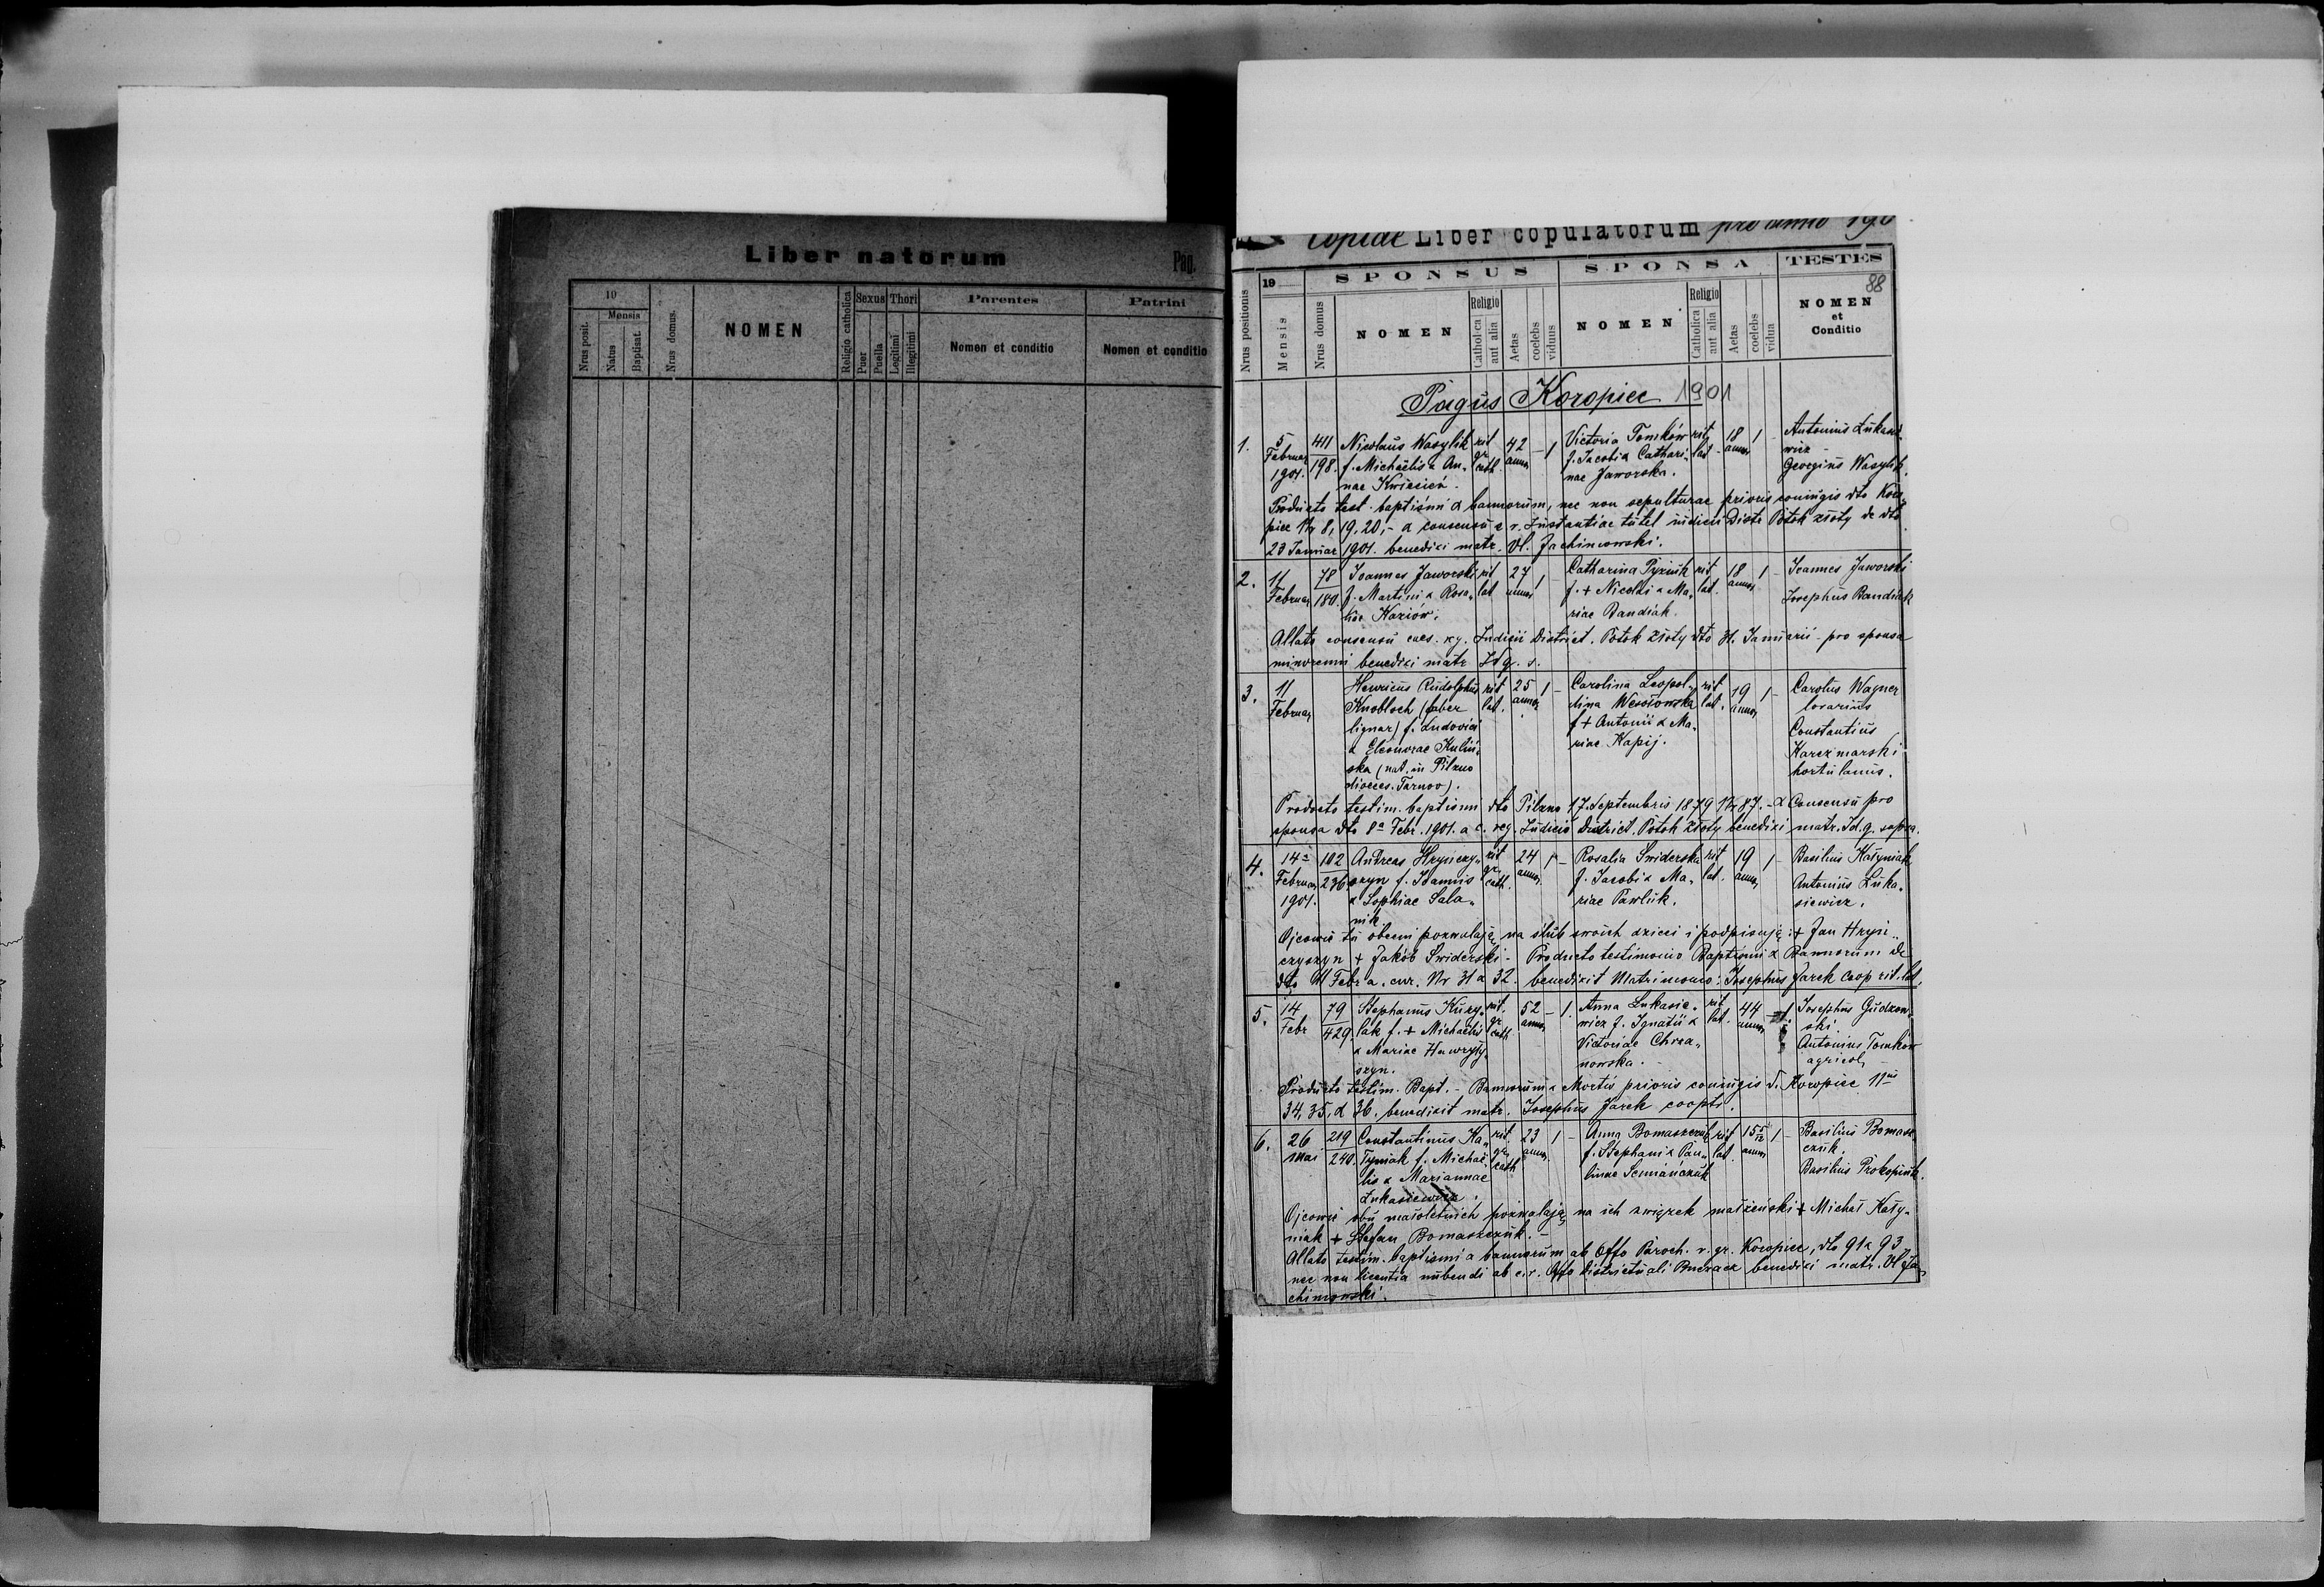 Liber natorum
Pag.
19
Nrus posit.
Mensis
Natus
Baptisat.
Nrus domus.
NOMEN
Religio catholica
Sexus
Puer
Puella
Thori
Legitimi
Illegitimi
Parentes
Nomen et conditio
Patrini
Nomen et conditio
Copiae Liber copulatorum pro anno 190
Nrus positionis
19
Mensis
SPONSUS
Nrus domus
NOMEN
Religio
Catholica
aut alia
Aetas
coelebs
viduus
SPONSA
NOMEN
Religio
Catholica
aut alia
Aetas
coelebs
vidua
TESTES
88
NOMEN
et
Conditio
Pagus Koropiec 1901
1.
5
Februar
1901.
411
198.
Nicolaus Wasylik
f. Michaelis & An-
nae Kwiecień.
rit
gr.
cath.
42
annor
– 1
Victoria Tomków
f. Jacobi & Cathari-
nae Jaworska.
rit
lat.
18
annor
1 –
Antonius Łukasie-
wicz
Georgius Wasylik.
Producto test. baptismi & bannorum, nec non sepulturae prioris coniugis dto Koro-
piec Nr 8, 19, 20, – & consensu c. r. Instantiae tutel iudicii Distr Potok złoty de dto
23 Januar 1901. benedixi matr. Vl. Jachimowski.
2.
11
Februar
78
180.
Joannes Jaworski
f. Martini & Rosa-
liae Kaziów.
rit
lat
27
annor
1 –
Catharina Pyziuk
f. + Nicolai & Ma-
riae Bandiak.
rit
lat.
18
annor
1 –
Joannes Jaworski
Josephus Bandiak
Allato consensu caes. rg. Iudicii District. Potok złoty dto 31. Januarii – pro sponsa
minorenni benedixi matr Id q. s.
3.
11
Februar
Henricus Rudolphus
Knobloch (faber
lignar) f. Ludovici
& Eleonorae Kuliń-
ska (nat. in Pilzno
dioeces. Tarnov).
rit
lat.
25
annor
1 –
Carolina Leopol-
dina Wesołowska
f + Antonii & Ma-
riae Kapij.
rit
lat.
19
annor
1 –
Carolus Wagner
lorarius
Constantius
Karczmarski
hortulanus.
Producto testim. baptismi dto Pilzno 17. Septembris 1879 Nr 87. – & Consensu pro
sponsa dto 8ª Febr. 1901. a c. reg. Iudicio District. Potok złoty benedixi matr. Id. q. supra.
4.
14ª
Februar
1901.
102
236
Andreas Hryńczy-
szyn f. Ioannis
& Sophiae Sala-
nik.
rit
gr.
cath.
24
annor
1 –
Rosalia Świderska
f. Jacobi & Ma-
riae Pawluk.
rit
lat.
19
annor
1 –
Basilius Katyniak
Antonius Łuka-
siewicz.
Ojcowie tu obecni pozwalają na ślub swoich dzieci i podpisują: + Jan Hryń-
czyszyn + Jakób Świderski – Producto testimonio Baptismi & Bannorum de
dto 11 Febr a. curr. Nr 31 & 32. benedixit Matrimonio: Josephus Jarek coop rit. lat.
5.
14
Febr
79
429.
Stephanus Kuzy-
lak f. + Michaelis
& Mariae Hawryły-
szyn.
rit.
gr.
cath
52
annor
– 1.
Anna Łukasie-
wicz f. Ignatii &
Victoriae Chrza-
nowska.
rit
lat.
44
annor
1.
Josephus Gudzow-
ski.
Antonius Tomków
agricol
Producto testim. Bapt. – Bannorum & Mortis prioris coniugis d. Koropiec Nris
34, 35, & 36. benedixit matr. Josephus Jarek cooptr.
6.
26
Mai
219
240.
Constantinus Ka-
tyniak f. Michae-
lis & Mariannae
Łukasiewicz.
rit.
gr.
cath
23
annor.
1 –
Anna Bomaszczuk
f. Stephani & Pau-
linae Semańczuk
rit
lat.
15 5/12
annor
1 –
Basilius Bomasz-
czuk.
Basilius Prokopiuk.
Ojcowie obu małoletnich pozwalają na ich związek małżeński + Michał Katy-
niak + Stefan Bomaszczuk. –
Allato testim. baptismi & bannorum ab Offo Paroch. r. gr. Koropiec, dto 91 & 93
nec non licentia nubendi ab c. r. Offo Districtuali Buczacz benedixi matr. Vl Ja-
chimowski.